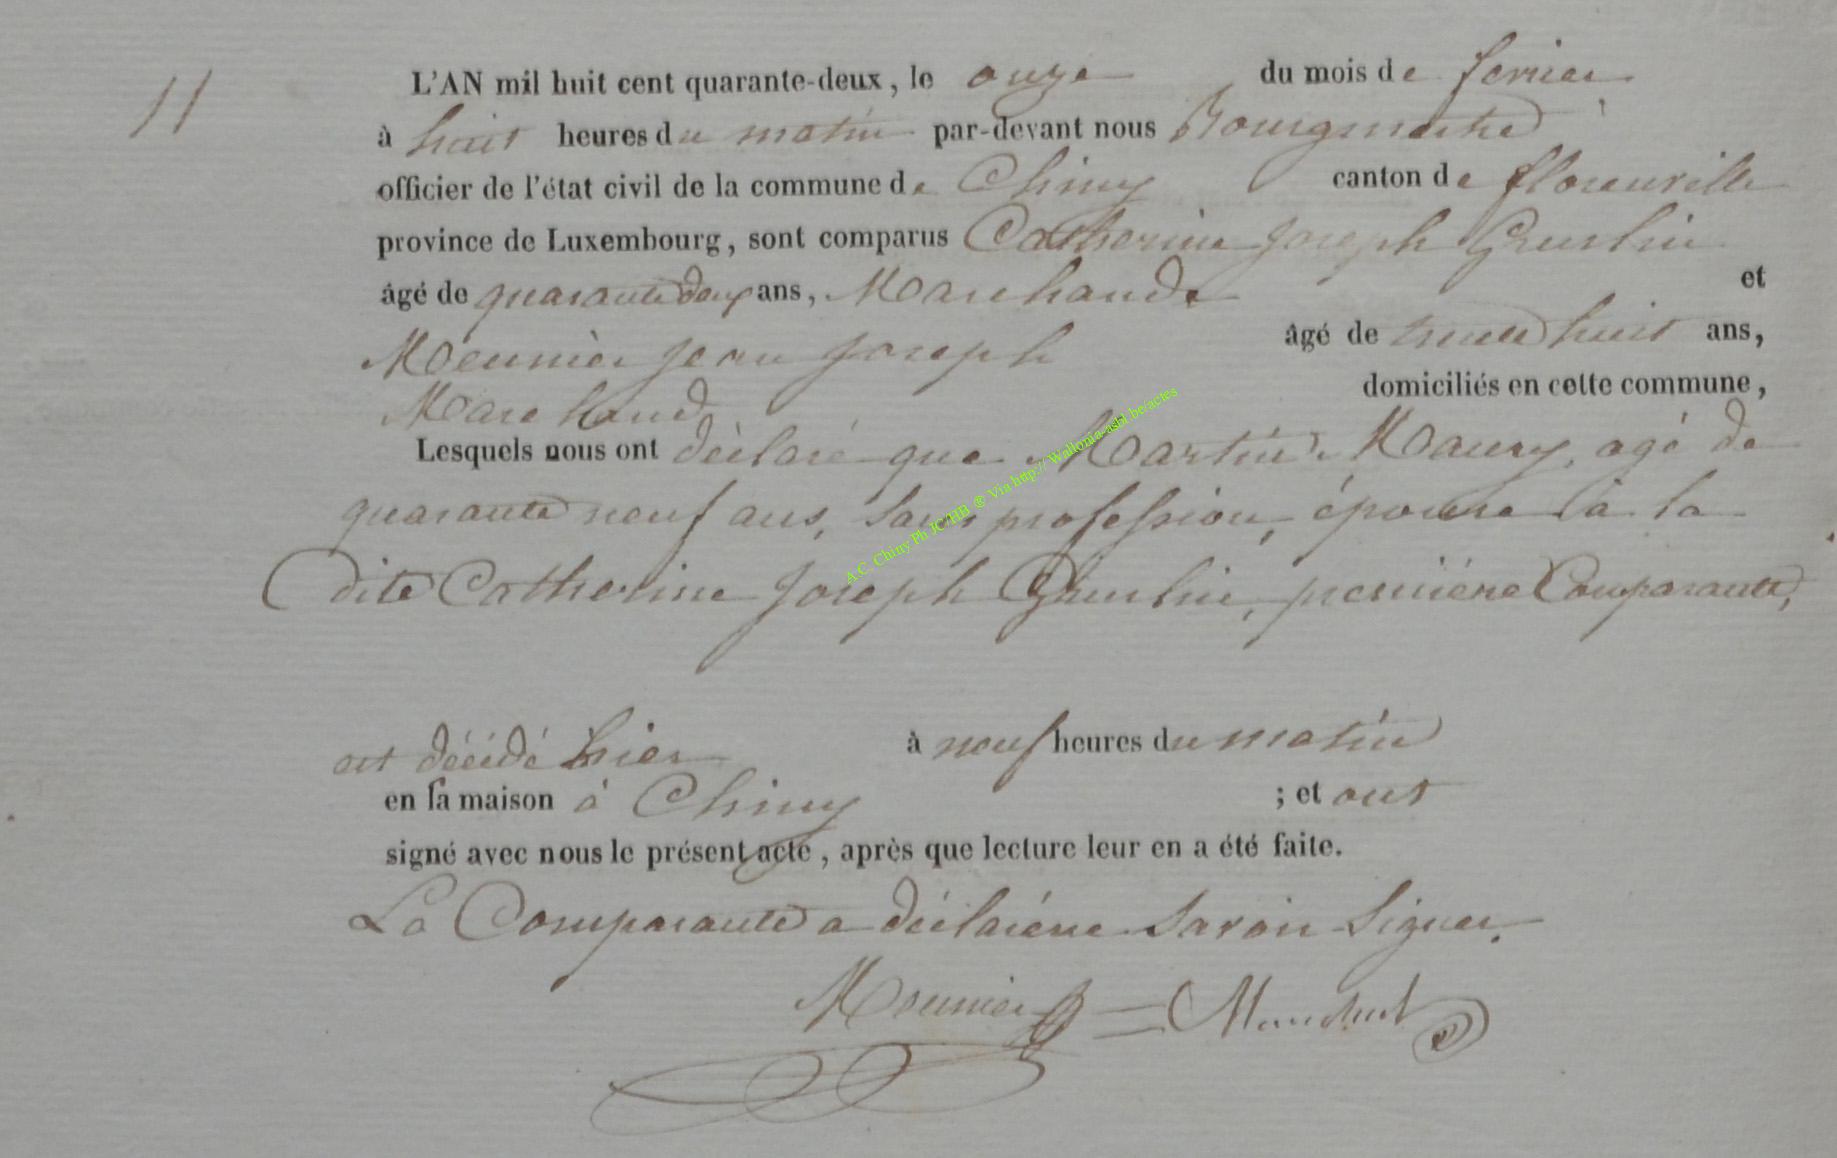 11
L'AN mil huit cent quarante-deux, le onze du mois de fevrier
à huit heures du matin par-devant nous Bourgmestre
officier de l'état civil de la commune de Chiny canton de florenville
province de Luxembourg, sont comparus Catherine Joseph
âgé de quarante deux ans, Marchande et
Meunier Jean Joseph âgé de trente huit ans,
Marchand domiciliés en cette commune,
Lesquels nous ont déclaré que Martin Maury, agé de
quarante neuf ans, sans profession, époux à la
dite Catherine Joseph première Comparante,
est décédé hier à neuf heures du matin
en sa maison à Chiny ; et ont
signé avec nous le présent acte, après que lecture leur en a été faite.
La Comparante a déclaré ne savoir signer.
Meunier
A.C. Chiny Ph JC/HB ® Via http:// Wallonia-asbl.be/actes